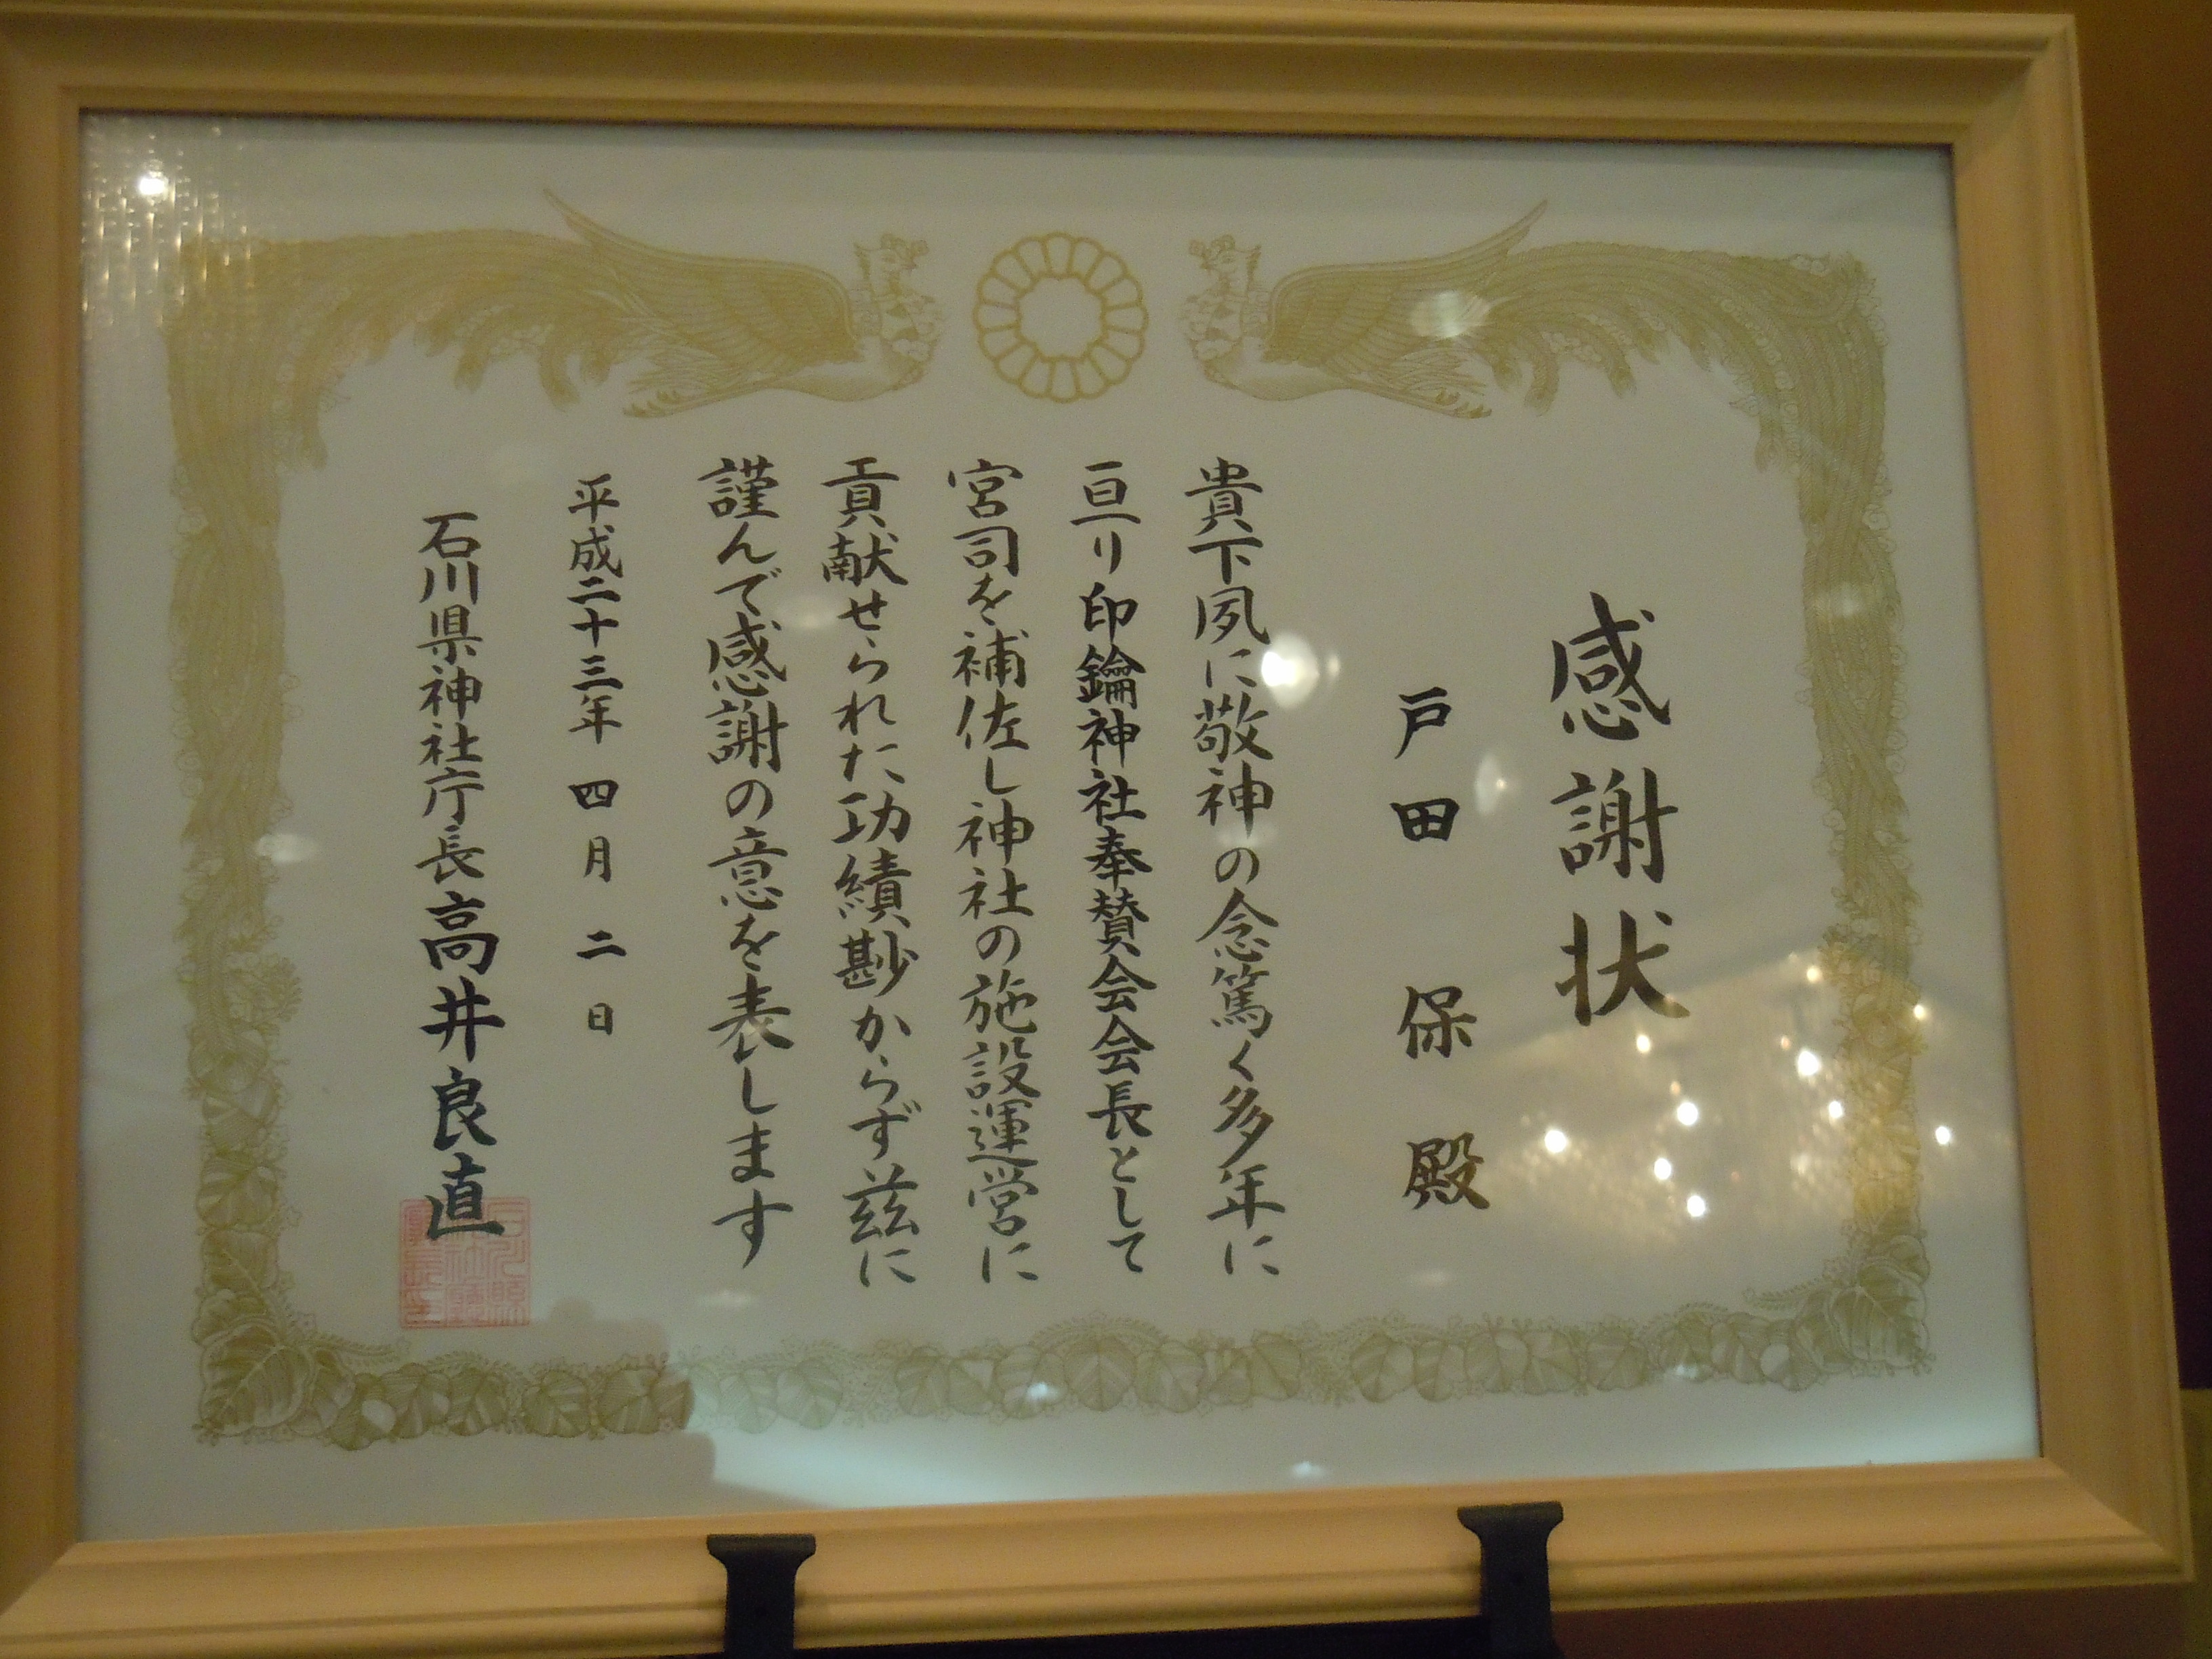 感謝状
戸田保殿
貴下夙に敬神の念篤く多年に
亘り印鑰神社奉賛会会長として
宮司を補佐し神社の施設運営に
貢献せられた功績尠からず茲に
謹んで感謝の意を表します
平成二十三年四月二日
石川県神社庁長高井良直